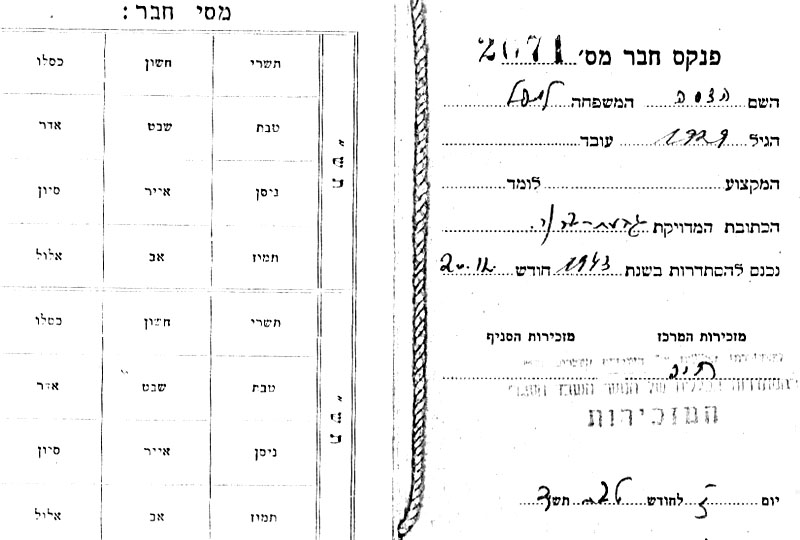 פנקס חבר מס׳ 2071
השם הדסה המשפחה
הגיל 1929 עובד
המקצוע לומד
הכתובת המדויקת
נכנס להסתדרות בשנת 1943 חודש
מזכירות המרכז מזכירות הסניף
המזכירות
יום לחודש טבת תש״ד
מסי חבר:
תש״
תשרי חשון כסלו
טבת שבט אדר
ניסן אייר סיון
תמוז אב אלול
תש״
תשרי חשון כסלו
טבת שבט אדר
ניסן אייר סיון
תמוז אב אלול